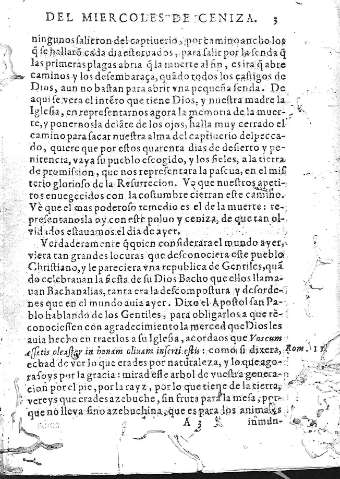 DEL MIERCOLES DE CENIZA. 3
ningunos salieron del captiuerio, por camino ancho los
q̃ se hallarõ cada dia estoruados, para salir por la senda q̃
las primeras plagas abriã q̃ la muerte al fin, essa q̃ abre
caminos y los desembaraça, quãdo todos los castigos de
Dios, aun no bastan para abrir vna pequeña senda. De
aqui se vera el intẽto que tiene Dios, y nuestra madre la
Iglesia, en representarnos agora la memoria de la muer-
te, y ponernosla delãte de los ojos, halla muy cerrado el
camino para sacar nuestra alma del captiuerio del pecca-
do, quiere que por estos quarenta dias de desierto y pe-
nitencia, vaya su pueblo escogido, y los fieles, a la tierra
de promission, que nos representara la pascua, en el mis
terio glorioso de la Resurrecion. Ve que nuestros apeti-
tos enuegecidos con la costumbre cierran este camino.
Vè que el mas poderoso remedio es el de la muerte: re-
presentanosla oy con este poluo y ceniza, de que tan ol-
vidados estauamos el dia de ayer.
Verdaderamente q̃ quien considerara el mundo ayer,
viera tan grandes locuras que desconociera este pueblo
Christiano, y le pareciera vna republica de Gentiles, quã
do celebrauan la fiesta de su Dios Bacho que ellos llama-
uan Bachanalias, tanta era la descompostura y desorde-
nes que en el mundo auia ayer. Dixo el Apostol san Pa-
blo hablando de los Gentiles, para obligarlos a que re-
conociessen con agradecimiento la merced que Dios les
auia hecho en traerlos a su Iglesia, acordaos que Vos cum
essetis oleaster in bonam oliuam inserti estis: como si dixera, Rom. 11
echad de ver lo que erades por naturaleza, y lo que ago-
ra soys por la gracia: mirad este arbol de vuestra genera-
cion por el pie, por la rayz, por lo que tiene de la tierra,
vereys que erades azebuche, sin fruta para la mesa, por-
que no lleva sino azebuchina, que es para los animales
A 3 inmun-